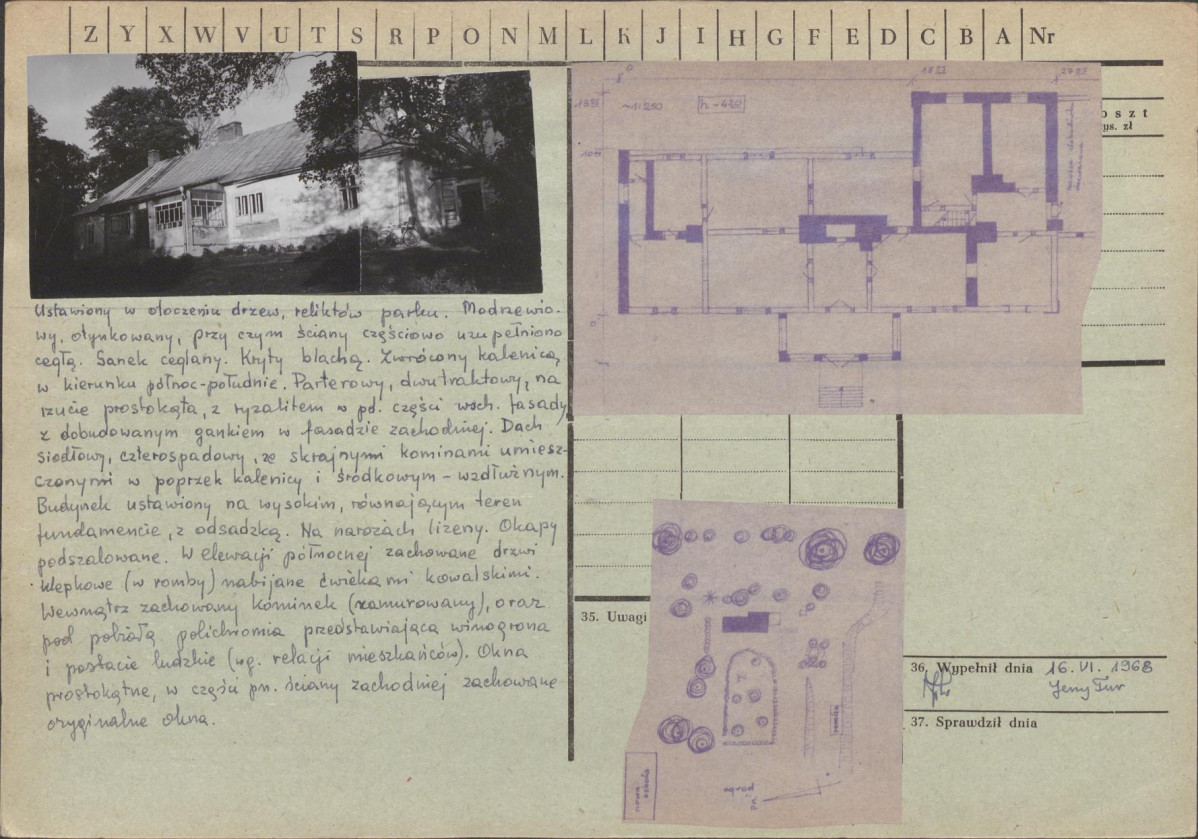 Z Y X W V U T S R P O N M L K J I H G F E D C B A Nr
oszt
ys. zł
0
18
27
~1:250
h-4
10
0
Ustawiony w otoczeniu drzew, reliktów parku. Modrzewio-
wy, otynkowany, przy czym ściany częściowo uzupełniono
cegłą. Ganek ceglany. Kryty blachą. Zwrócony kalenicą
w kierunku północ-południe. Parterowy, dwutraktowy, na
rzucie prostokąta, z ryzalitem w pd. części wsch. fasady
z dobudowanym gankiem w fasadzie zachodniej. Dach
siodłowy, czterospadowy, ze skrajnymi kominami umiesz-
czonymi w poprzek kalenicy i środkowym - wzdłużnym.
Budynek ustawiony na wysokim, równającym teren
fundamencie, z odsadzką. Na narożach lizeny. Okapy
podszalowane. W elewacji północnej zachowane drzwi
klepkowe (w romby) nabijane ćwiekami kowalskimi.
Wewnątrz zachowany kominek (zamurowany), oraz
pod pobiałą polichromia przedstawiająca winogrona
i postacie ludzkie (wg. relacji mieszkańców). Okna
prostokątne, w części pn. ściany zachodniej zachowane
oryginalne okna.
nowa
szkoła
35. Uwagi
36. Wypełnił dnia 16. VI. 1968
Jerzy Tur
37. Sprawdził dnia